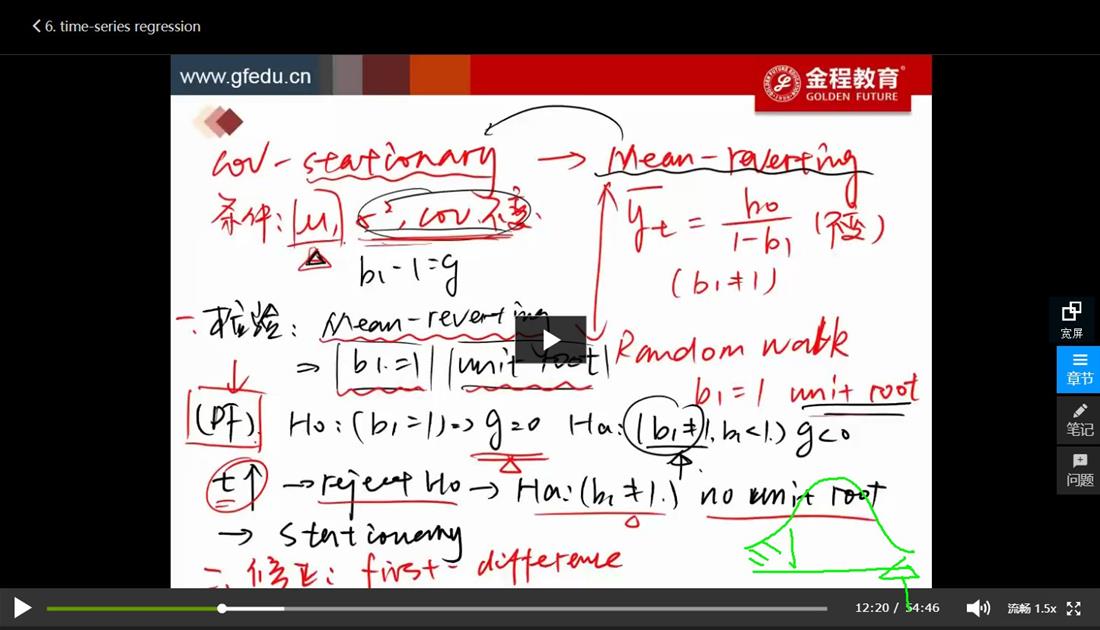 6. time-series regression
www.gfedu.cn
金程教育
GOLDEN FUTURE
cov-stationary → Mean-reverting
条件: μ, σ², cov 不变.
ȳt = b0 / 1-b1 (不变)
b1-1=g
(b1≠1)
一. 检验: Mean-reverting
⇒ |b1=1| |unit root|
Random walk
b1=1 unit root
(DF). H0: (b1=1) => g=0 Ha: (b1≠1, b1<1.) g<0
t↑ → reject H0 → Ha: (b1≠1.) no unit root
→ Stationary
二. 修正: first-difference
宽屏
章节
笔记
问题
12:20 / 54:46
流畅 1.5x